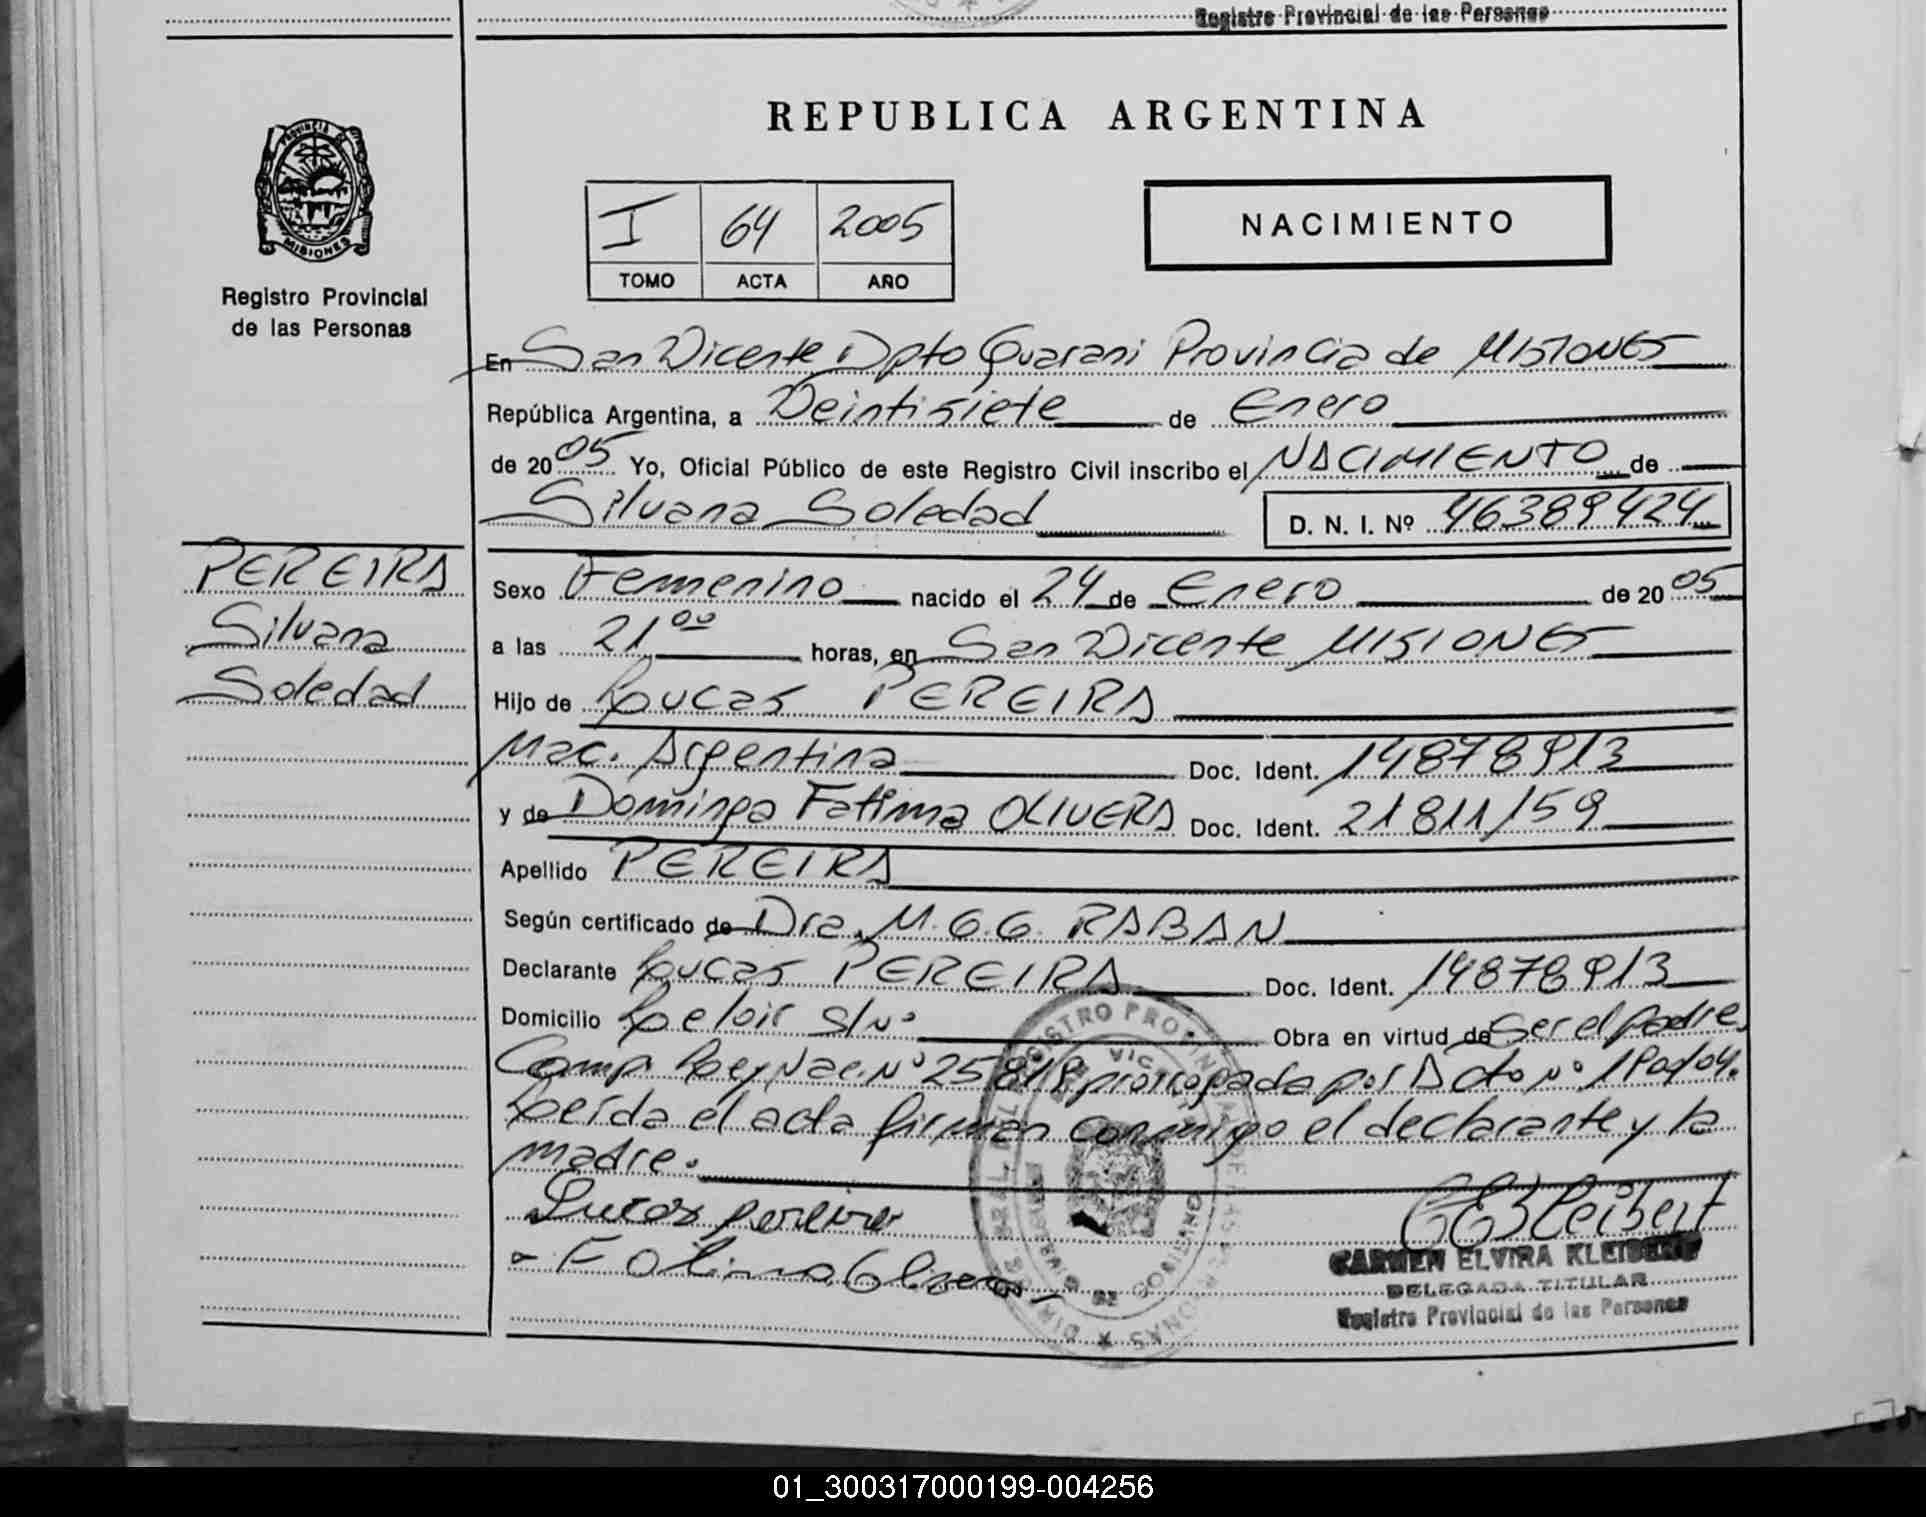 Registro Provincial de las Personas
REPUBLICA ARGENTINA
PROVINCIA DE
MISIONES
Registro Provincial
de las Personas
I 64 2005
TOMO ACTA AÑO
NACIMIENTO
En San Vicente Dpto Guarani Provincia de MISIONES
República Argentina, a Veintisiete de Enero
de 2005 Yo, Oficial Público de este Registro Civil inscribo el NACIMIENTO de
Silvana Soledad D. N. I. Nº 46389424
PEREIRA
Silvana
Soledad
Sexo Femenino nacido el 24 de Enero de 2005
a las 21⁰⁰ horas, en San Vicente MISIONES
Hijo de Lucas PEREIRA
Nac. Argentina Doc. Ident. 14878913
y de Dominga Fatima OLIVERA Doc. Ident. 21811159
Apellido PEREIRA
Según certificado de Dra. M. G. G. RABAN
Declarante Lucas PEREIRA Doc. Ident. 14878913
Domicilio Leloir S/Nº Obra en virtud de Ser el padre
Comp. Ley Nac. Nº 25819 prorrogada por Dcto Nº
Leida el acta firman conmigo el declarante y la
madre.
Lucas pereira
Fatima Olivera
CEKleibert
CARMEN ELVIRA KLEIBERT
DELEGADA TITULAR
Registro Provincial de las Personas
01_300317000199-004256